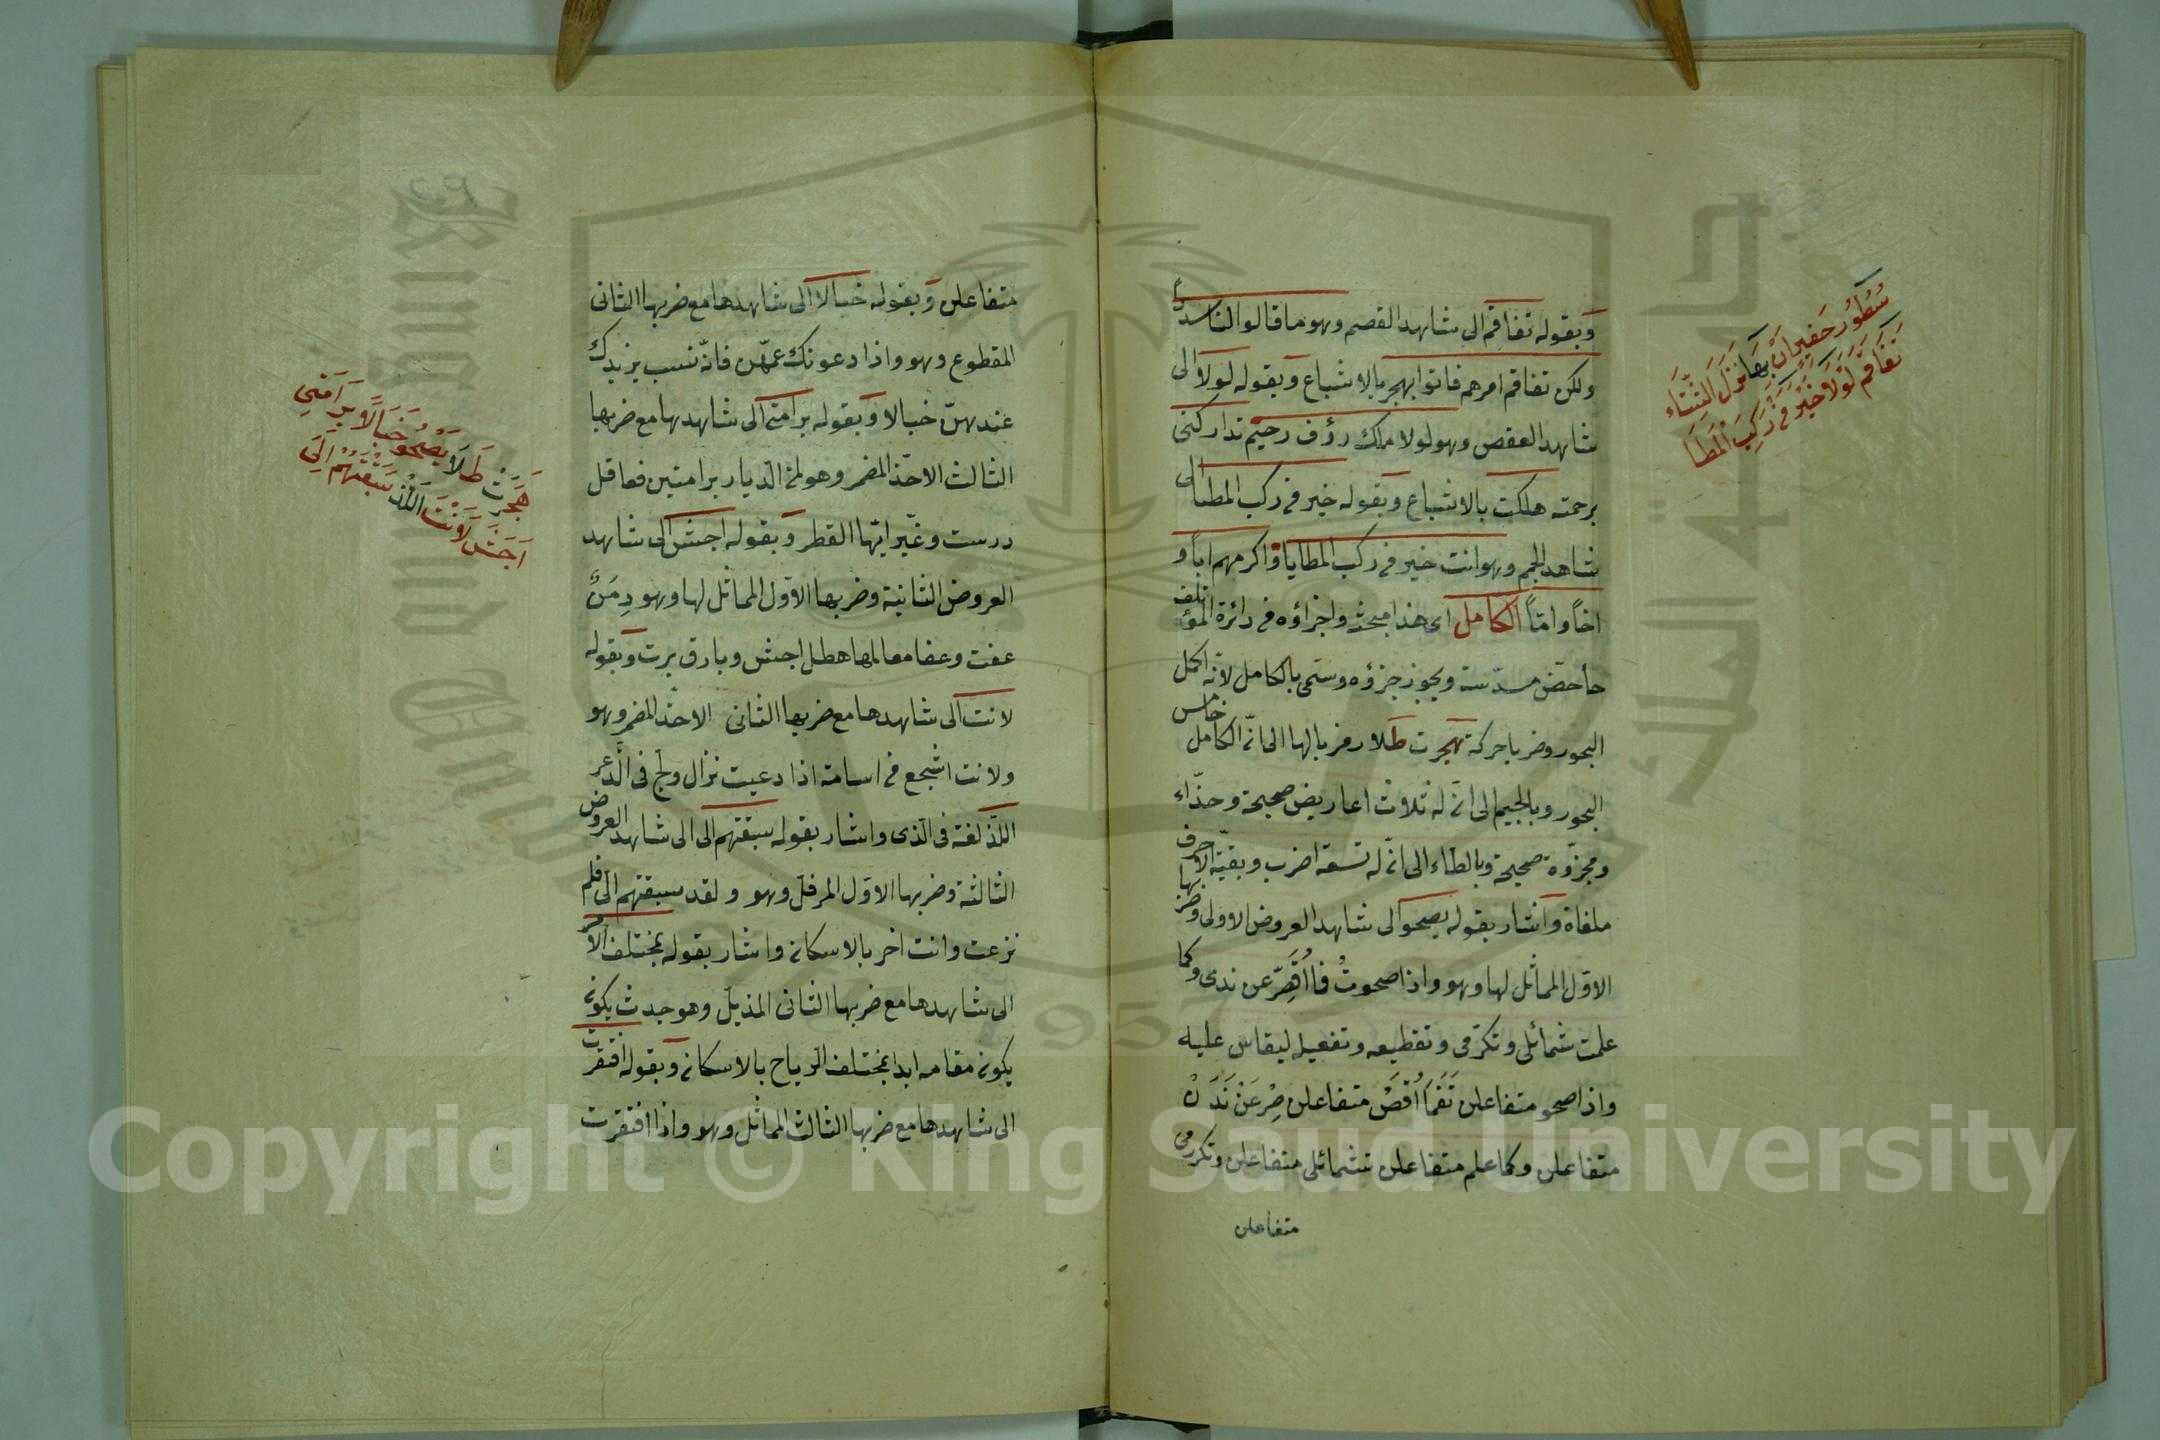 سُطُورٌ حَفِيرَانٌ بِهَا نَزَلَ الشِّتَاءُ
تَفَاقَمَ لَوْلَا خَيْرُ مَنْ رَكِبَ الْمَطَا
وبقوله تفاقم الى شاهد القصم وهو ما قالوا لنا سددا
ولكن تفاقم امرهم فاتوا بهجر بالاشباع وبقوله لولا الى
شاهد العقص وهو لولا ملك رؤف رحيم تداركنى
برحمته هلكت بالاشباع وبقوله خير من ركب المطا الى
شاهد الجم وهو انت خير من ركب المطايا واكرمهم اباً و
اخاً واماً الكامل اى هذا مبحثه واجزاؤه فى دائرة المؤتلف
مسدّسة ويجوز جزؤه وسمّى بالكامل لانه اكمل
البحور وضربا حركة هجرت طلا رمز بالها الى انّ الكامل خامس
البحور وبالجيم الى انّ له ثلاث اعاريض صحيحة وحذّاء
ومجزّوة صحيحة وبالطاء الى انّ له تسعة اضرب وبقيّة الاحرف
ملغاة واشار بقوله يصحو الى شاهد العروض الاولى وضربها
الاوّل المماثل لها وهو واذا صحوتُ فما اُقَصِّر عن ندى وكما
علمت شمائلى وتكرّمى وتقطيعه وتفعيله ليقاس عليه
واذا صحو متفاعلن تَفَمَا اُقَصْ متفاعلن صِرُ عَنْ نَدَنْ
متفاعلن وكما علم متفاعلن تشمائلى متفاعلن وتكررمى
متفاعلن
متفاعلن وبقوله خبالا الى شاهدها مع ضربها الثانى
المقطوع وهو واذا دعونك عمّهن فانّه نسب يزيدك
عندهنّ خبالا وبقوله برامتى الى شاهدها مع ضربها
الثالث الاحذّ المضمر وهو لمن الديار برامتين فعاقل
درست وغيّر ايّها القطر وبقوله اجش الى شاهد
العروض الثانية وضربها الاوّل المماثل لها وهو دِمَنٌ
عفت وعفا معالمها هطل اجش وبارق برت وبقوله
لانت الى شاهدها مع ضربها الثانى الاحذّ المضمر وهو
ولانت اشجع من اسامة اذا دعيت نزال ولج فى الذّعر
اللّذ لغة فى الّذى واشار بقوله سبقتهم الى الى شاهد العروض
الثالثة وضربها الاوّل المرفل وهو ولقد سبقتهم الىّ فلم
نزعت وانت اخر بالاسكان واشار بقوله بمختلف الامر
الى شاهدها مع ضربها الثانى المذيل وهو جدث يكون
يكون مقامه ابدا بمختلف الرياح بالاسكان وبقوله افتقرت
الى شاهدها مع ضربها الثالث المماثل وهو واذا افتقرت
هَجَرَتْ طَلًا يَصْحُو خَبَالًا بِرَامَتِي
اَجَشَّ لَأَنْتَ اللَّذْ سَبَقْتَهُمُ اِلَى
Copyright © King Saud University
1957